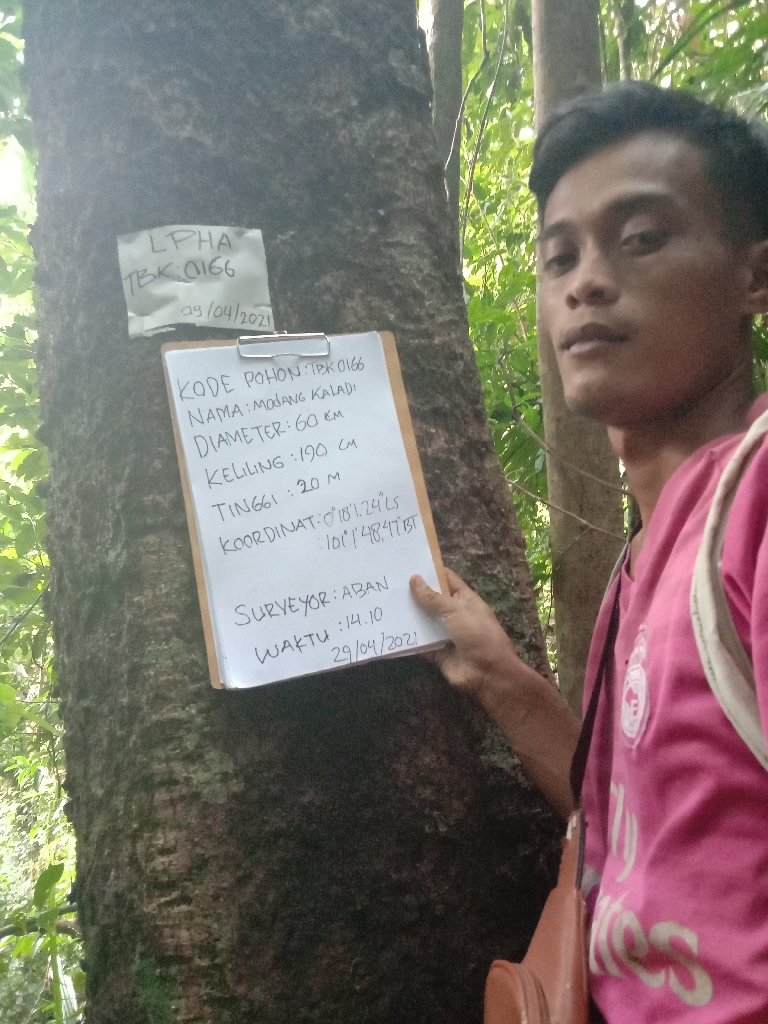 LPHA
TBK.0166
29/04/2021
KODE POHON : TBK 0166
NAMA : MODANG KALADI
DIAMETER : 60 CM
KELILING : 190 CM
TINGGI : 20 M
KOORDINAT : 0° 18' 1.24" LS
: 101° 1' 48.47" BT
SURVEYOR : ABAN
WAKTU : 14.10
29/04/2021
Fly
Emirates